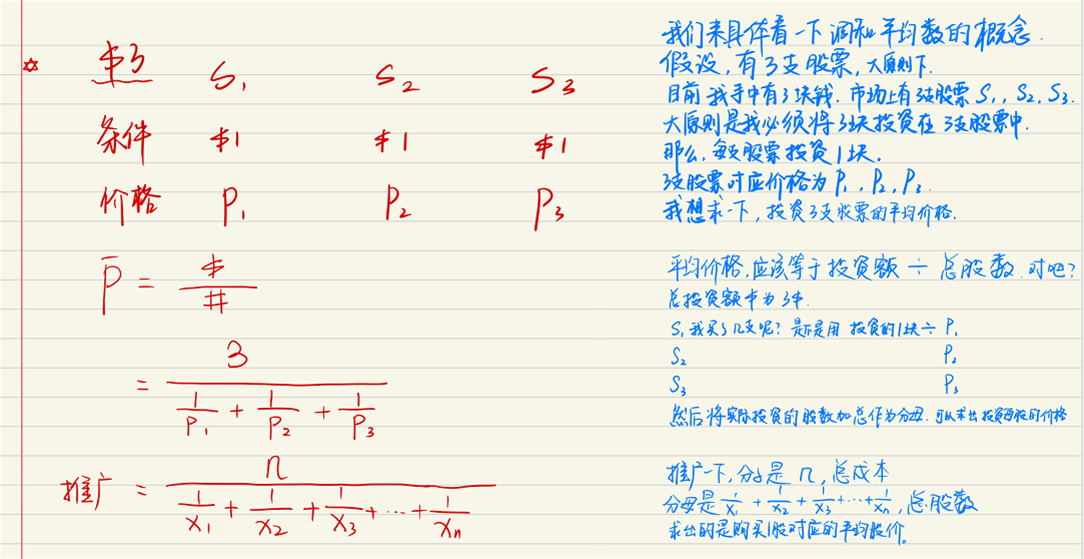 ☆ $3 S₁ S₂ S₃
条件 $1 $1 $1
价格 P₁ P₂ P₃
P̄ = $ / #
= 3 / (1/P₁ + 1/P₂ + 1/P₃)
推广 = n / (1/X₁ + 1/X₂ + 1/X₃ + ... + 1/Xn)
我们来具体看一下调和平均数的概念.
假设,有3支股票,大原则下.
目前我手中有3块钱.市场上有3支股票 S₁, S₂, S₃.
大原则是我必须将3块投资在3支股票中.
那么,每支股票投资1块.
3支股票对应价格为P₁, P₂, P₃.
我想求一下,投资3支股票的平均价格.
平均价格,应该等于投资额 ÷ 总股数.对吧?
总投资额$为3$.
S₁我买了几支呢? 是不是用 投资的1块÷ P₁
S₂ P₂
S₃ P₃
然后将实际投资的股数加总作为分母.可以求出投资每股的价格
推广一下,分子是 n,总成本
分母是 1/X₁ + 1/X₂ + 1/X₃ + ... + 1/Xn,总股数
求出的是购买1股对应的平均股价。